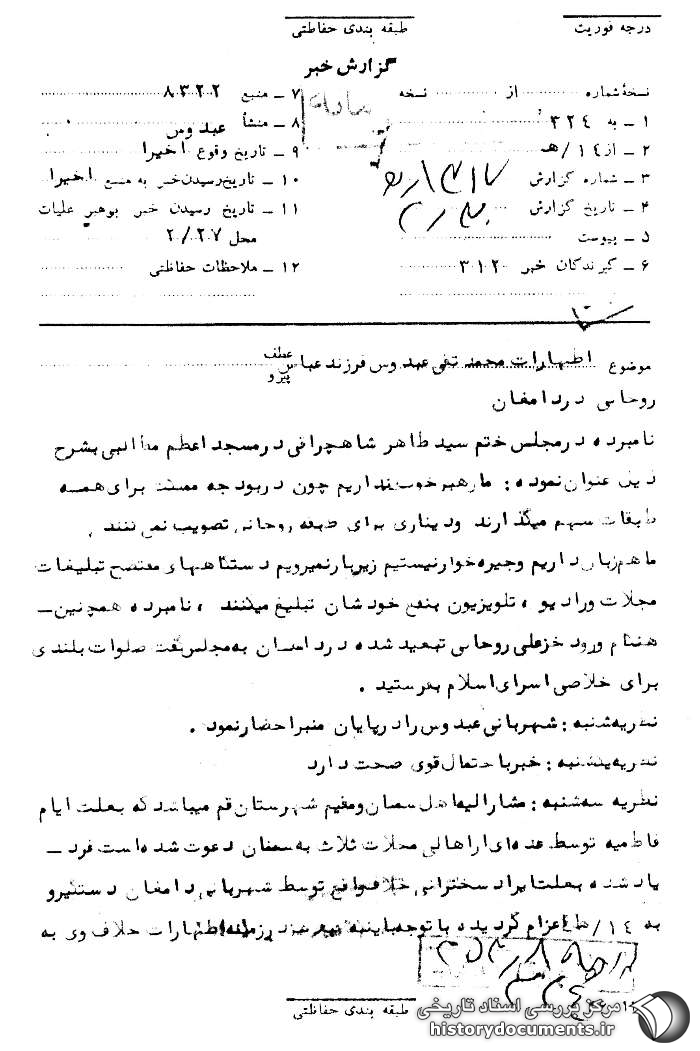 درجه فوریت
طبقه بندی حفاظتی
گزارش خبر
نسخهٔ شماره از نسخه
۷ ـ منبع ۸۳۲۲
۱ ـ به ۳۲۴
۸ ـ منشأ عبدوس
۲ ـ از ۱۴/هـ
۹ ـ تاریخ وقوع اخیرا
۳ ـ شماره گزارش
۱۰ ـ تاریخ رسیدن خبر به منبع اخیرا
۴ ـ تاریخ گزارش
۱۱ ـ تاریخ رسیدن خبر بوهبر عملیات
محل ۲/۲۷
۵ ـ پیوست
۶ ـ گیرندگان خبر ۳۱۲
۱۲ ـ ملاحظات حفاظتی
موضوع اظهارات محمد تقی عبدوس فرزند عباس
عطف
پیرو
روحانی در دامغان
نامبرده در مجلس ختم سید طاهر شاهچراغی در مسجد اعظم مطالبی بشرح
ذیل عنوان نموده : ما رهبر خوب نداریم چون در بودجه مملکت برای همه
طبقات سهم میگذارند و دیناری برای طبقه روحانی تصویب نمی کنند ,
ما هم زبان داریم و جیره خوار نیستیم زیر بار نمیرویم دستگاههای مفتضح تبلیغات
مجلات و رادیو ، تلویزیون بنفع خودشان تبلیغ میکنند ، نامبرده همچنین ـ
هنگام ورود خزعلی روحانی تبعید شده در دامغان به مجلس گفت صلوات بلندی
برای خلاصی اسرای اسلام بفرستید .
نظریه شنبه : شهربانی عبدوس را در پایان منبر احضار نمود .
نظریه یکشنبه : خبر با حتمال قوی صحت دارد
نظریه سه شنبه : مشارالیه اهل سمنان و مقیم شهرستان قم میباشد که بعلت ایام
فاطمیه توسط عده ای از اهالی محلات ثلاث به سمنان دعوت شده است فرد ـ
یاد شده بعلت ایراد سخنرانی خلاف واقع توسط شهربانی دامغان دستگیر و
به ۱۴/هـ۱ اعزام گردیده با توجه باینکه اظهارات خلاف وی به
طبقه بندی حفاظتی
مرکز بررسی اسناد تاریخی
historydocuments.ir